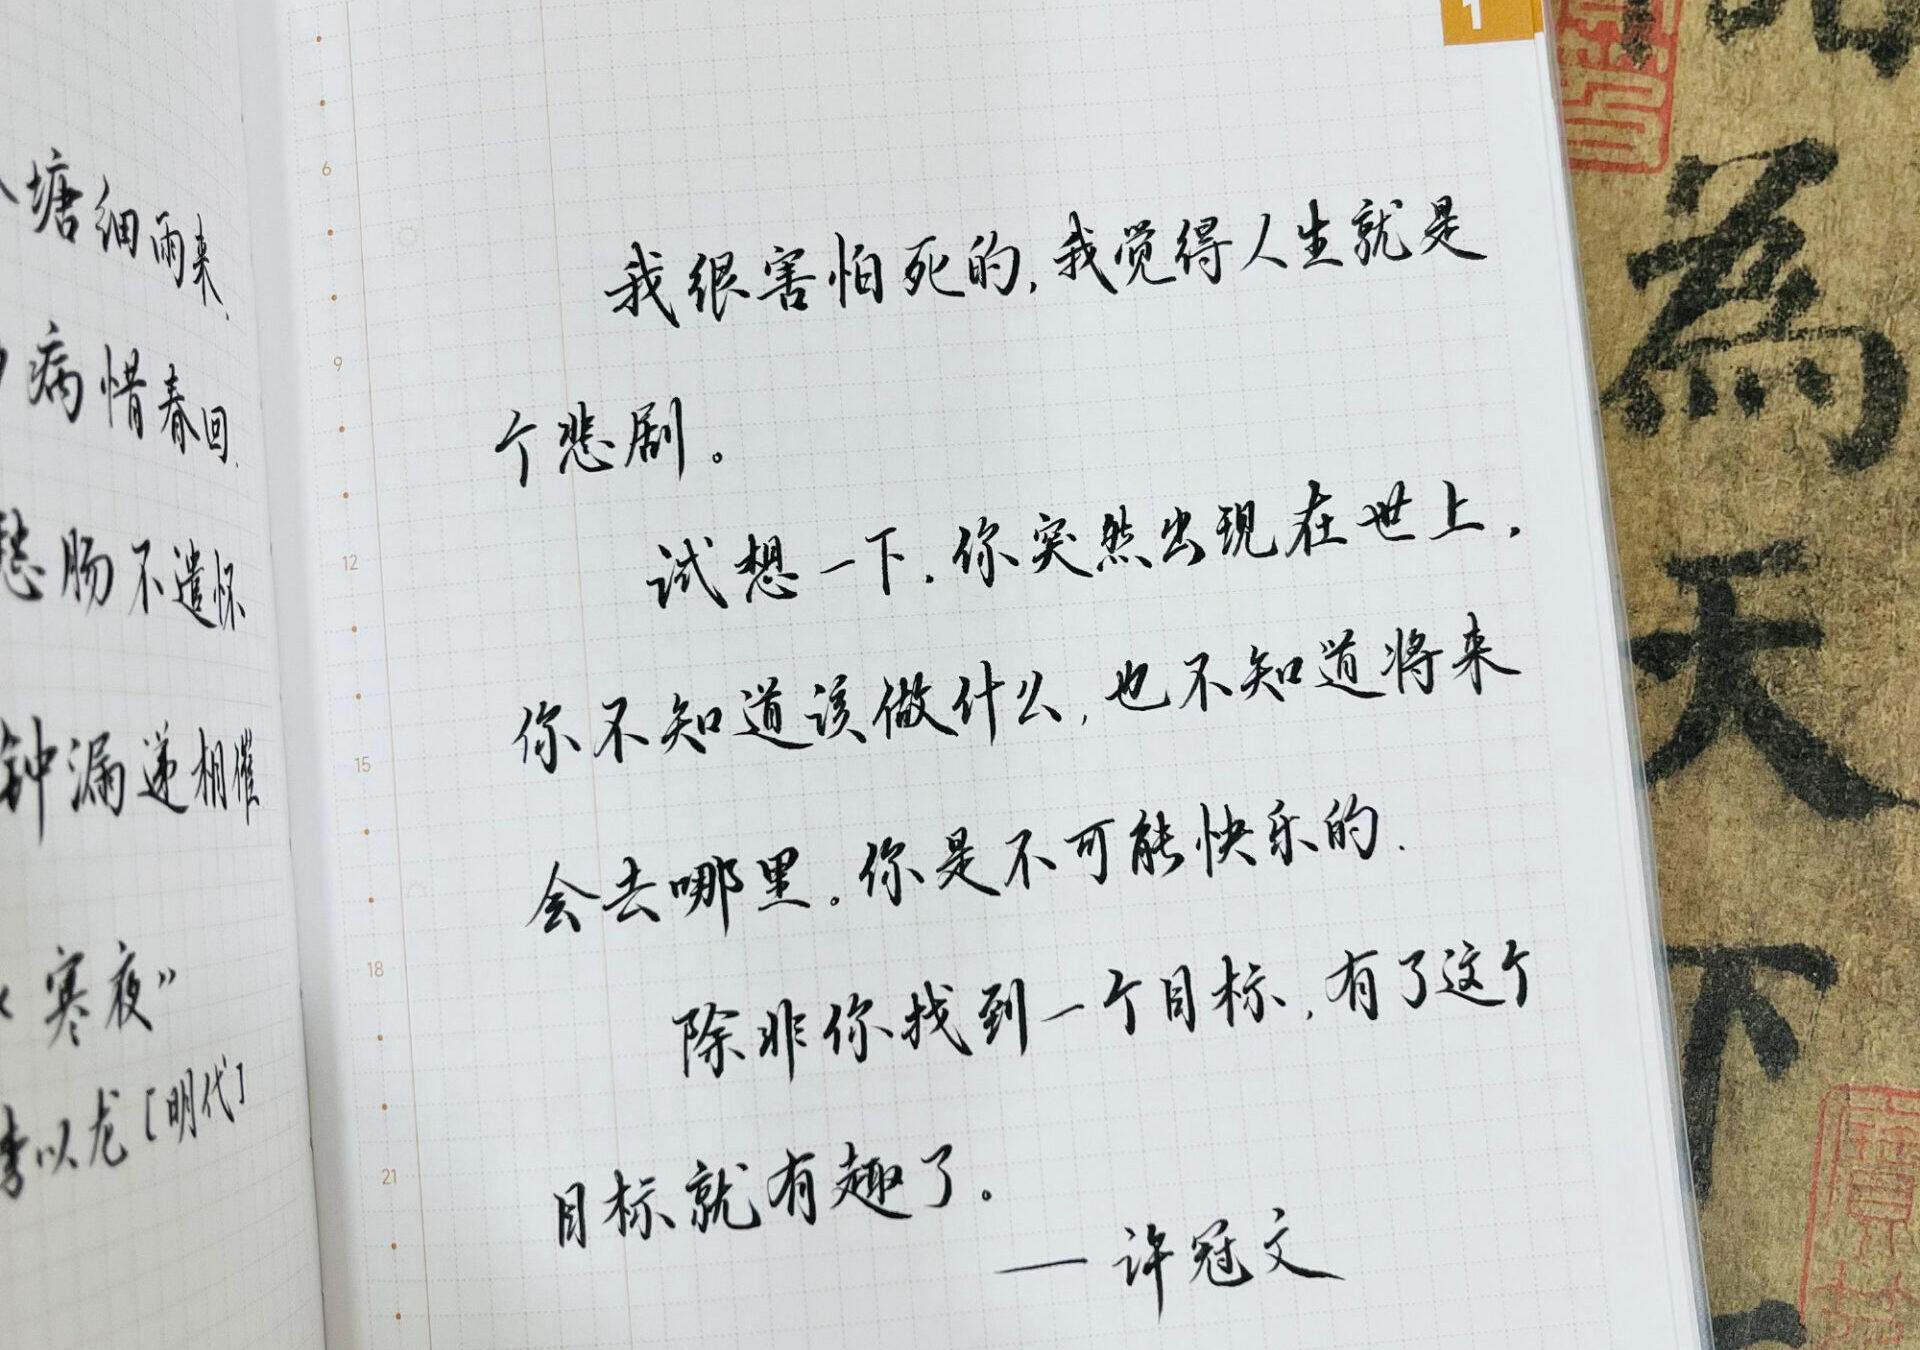 塘细雨来、
病惜春回.
愁肠不遣怀
钟漏递相催
《寒夜》
李以龙[明代]
1
6
9
12
15
18
21
我很害怕死的,我觉得人生就是
个悲剧。
试想一下,你突然出现在世上,
你不知道该做什么,也不知道将来
会去哪里。你是不可能快乐的.
除非你找到一个目标,有了这个
目标就有趣了。
——许冠文
為
天
下